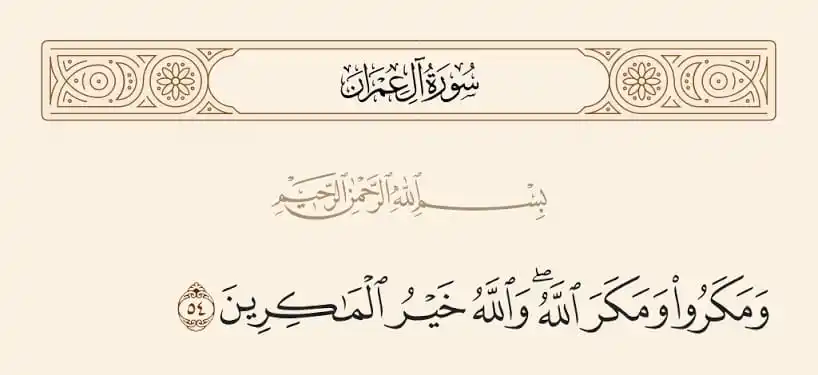 سُورَةُ آلِ عِمْرَانَ
بِسْمِ ٱللَّهِ ٱلرَّحْمَٰنِ ٱلرَّحِيمِ
وَمَكَرُوا۟ وَمَكَرَ ٱللَّهُ ۖ وَٱللَّهُ خَيْرُ ٱلْمَـٰكِرِينَ ٥٤